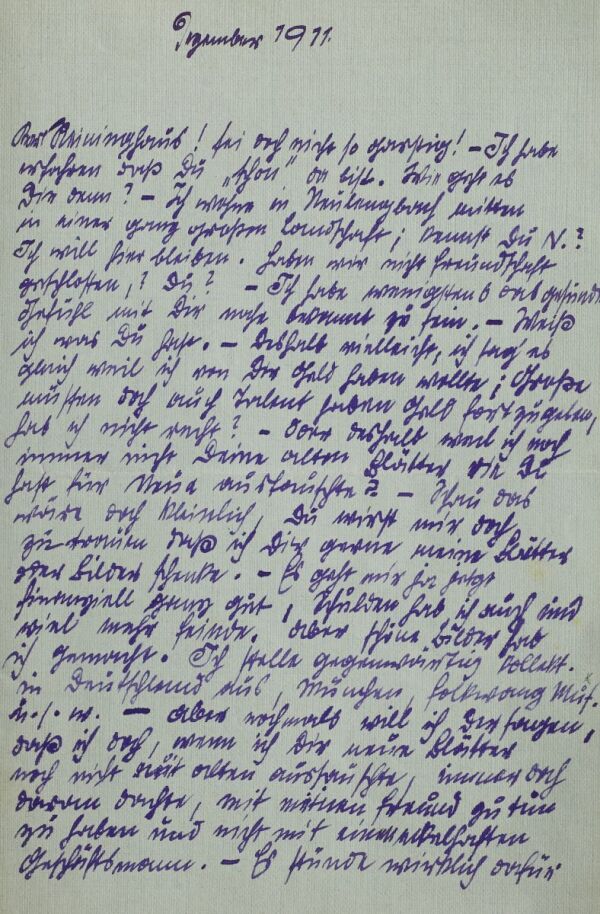 Dezember 1911.
Reininghaus! sei doch nicht so garstig! – Ich habe
erfahren daß Du „schon" da bist. Wie geht es
Dir denn? – Ich wohne in Neulengbach mitten
in einer ganz großen Landschaft; kennst Du N.?
Ich will hier bleiben. Haben wir nicht Freundschaft
geschlossen,? Du? – Ich habe wenigstens das gesunde
Gefühl mit Dir nahe bekannt zu sein. – Weiß
ich was Du hast. – Deshalb vielleicht, ich sag' es
gleich weil ich von Dir Geld haben wollte; Große
müssen doch auch Talent haben Geld fortzugeben,
hab ich nicht recht? – Oder deshalb weil ich noch
immer nicht Deine alten Blätter die Du
hast für Neue austauschte? – Schau das
wäre doch kleinlich, Du wirst mir doch
zutrauen daß ich Dir gerne meine Blätter
oder Bilder schenke. – Es geht mir ja jetzt
finanziell ganz gut, Schulden hab ich auch und
viel mehr Feinde. Aber schöne Bilder hab
ich gemacht. Ich stelle gegenwärtig kollekt.
in Deutschland aus, München, Folkwang Mus.
u. s. w. – Aber nochmals will ich Dir sagen,
daß ich doch, wenn ich Dir neue Blätter
noch nicht mit alten austauschte, immer doch
daran dachte, mit meinem Freund zu tun
zu haben und nicht mit einem ekelhaften
Geschäftsmann. – Es stünde wirklich dafür